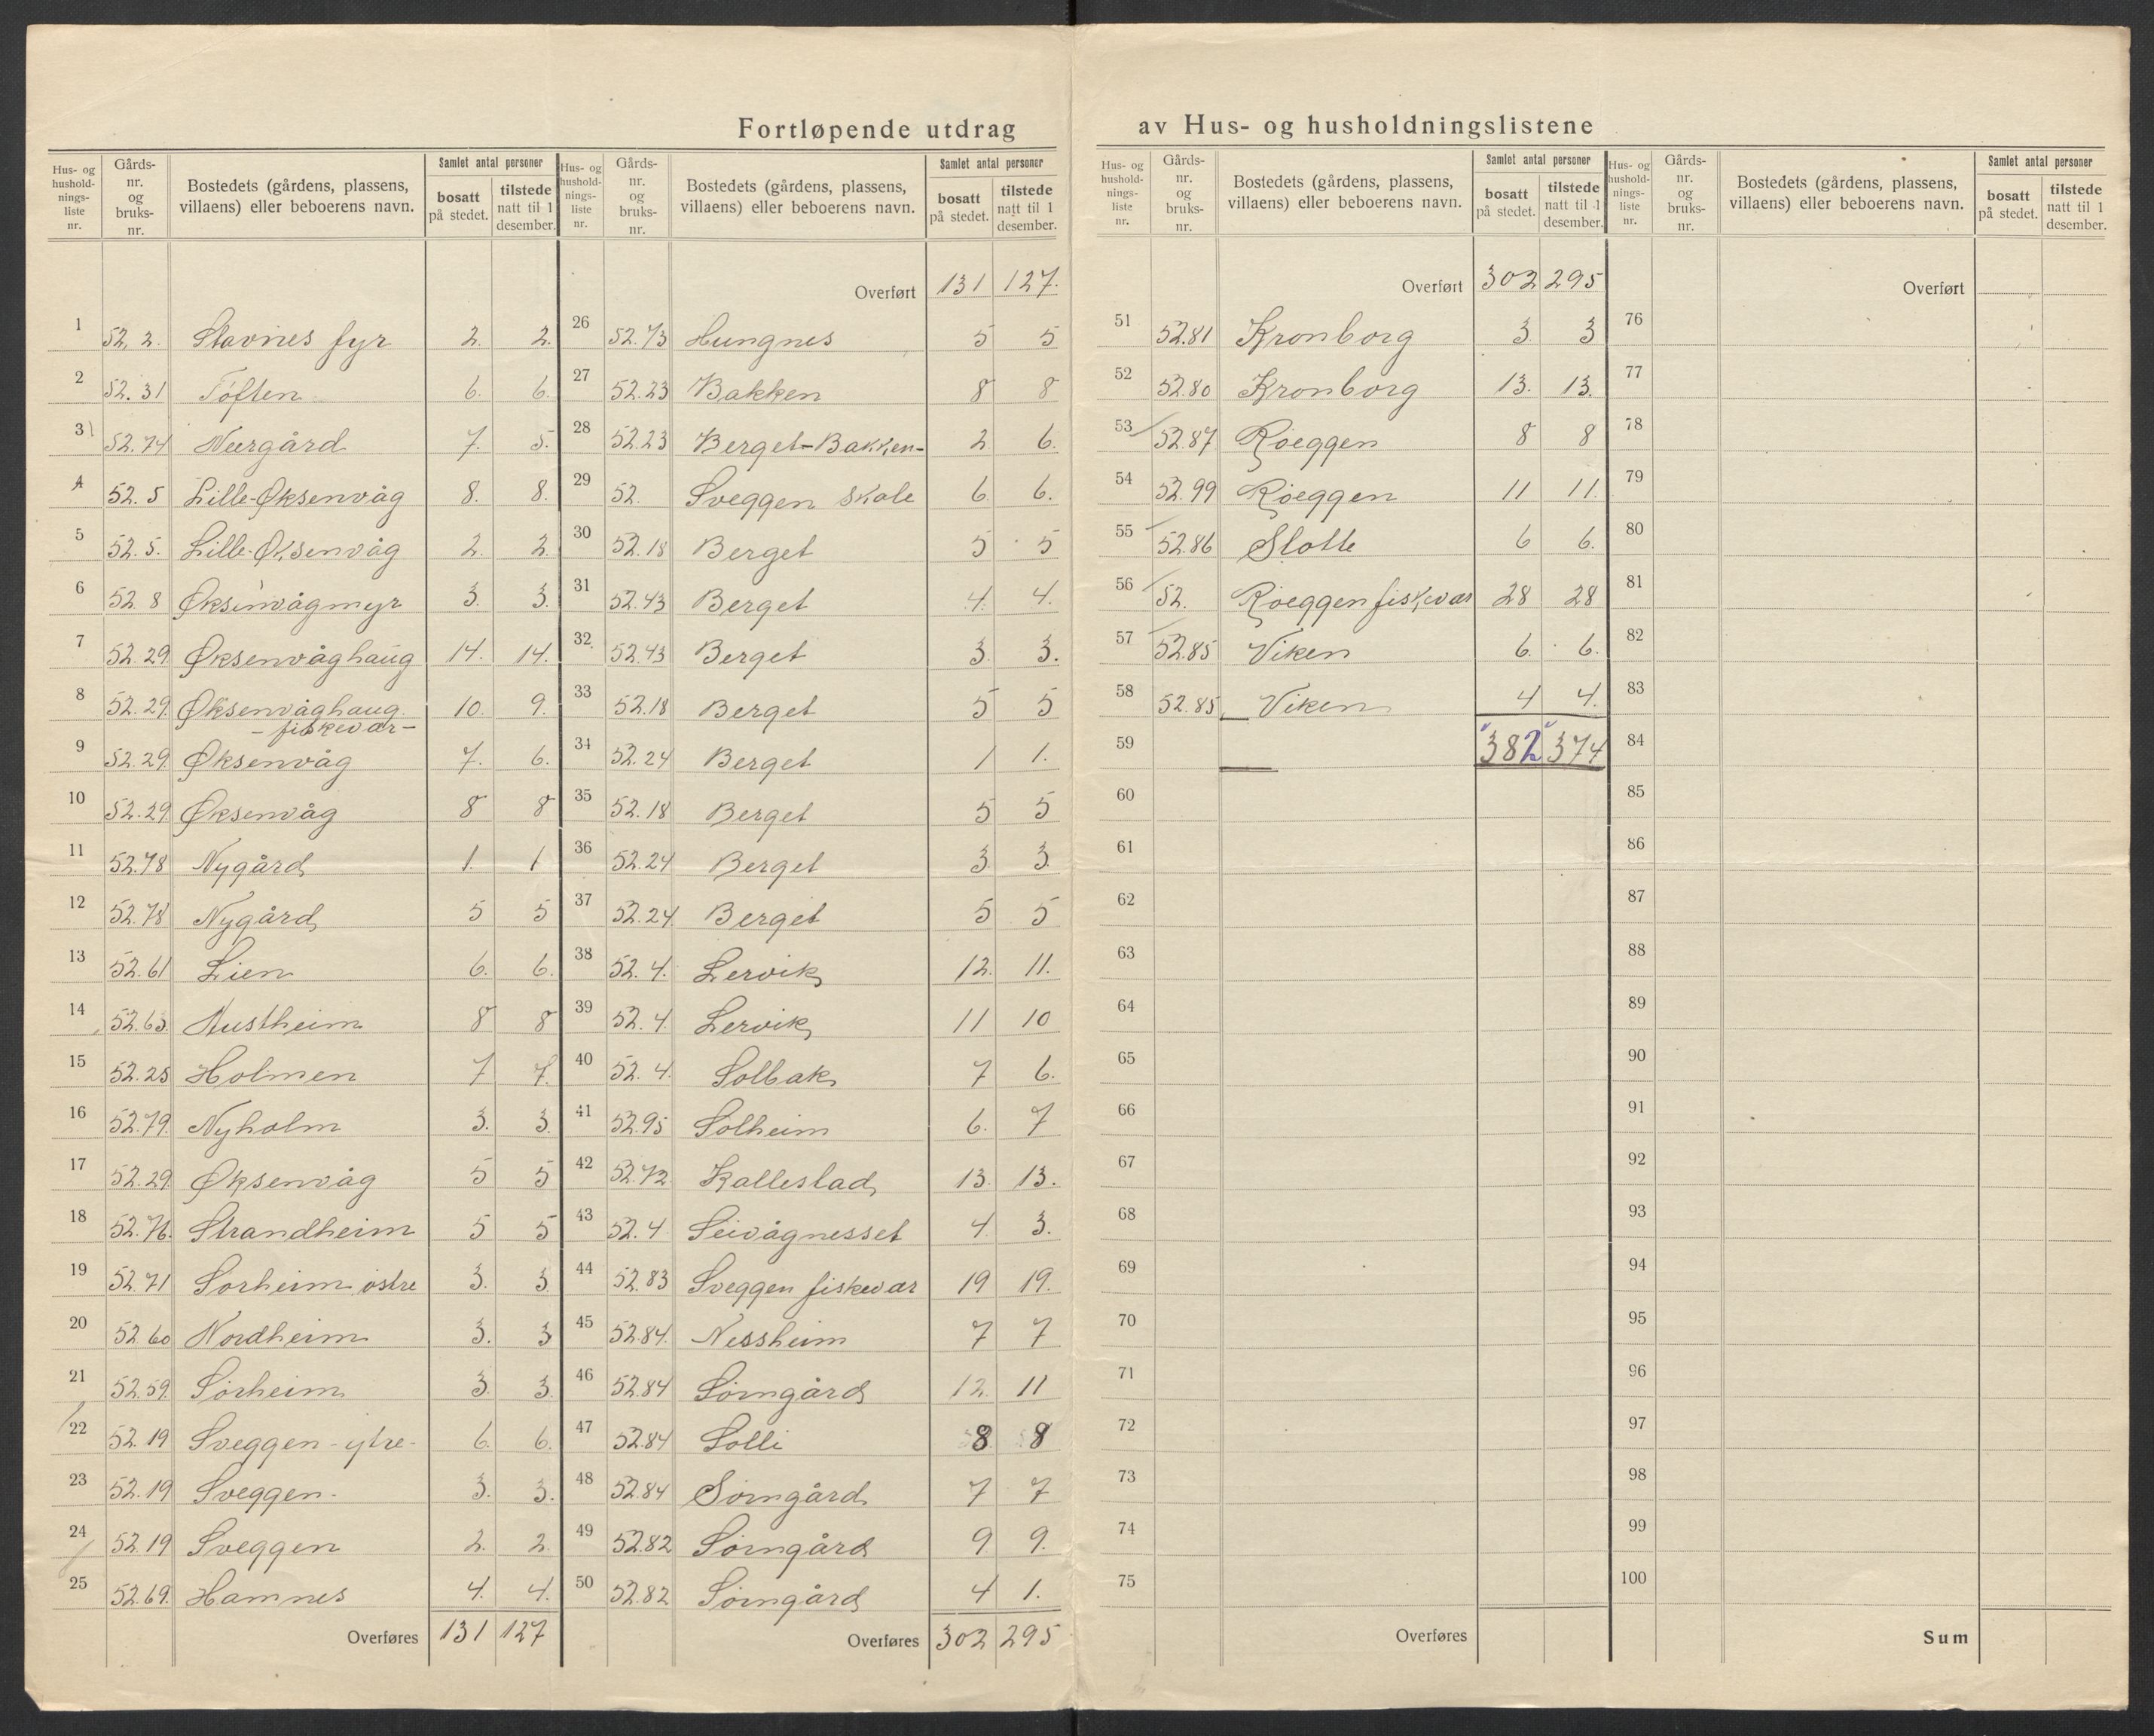 Fortløpende utdrag av Hus- og husholdningslistene
Hus- og hushold-nings-liste nr. | Gårds-nr. og bruks-nr. | Bostedets (gårdens, plassens, villaens) eller beboerens navn. | Samlet antal personer | bosatt på stedet. | tilstede natt til 1 desember.
1 52, 2. Stavnes fyr 2. 2.
2 52. 31 Toften 6. 6.
3 52. 74 Neergård 7. 5.
4 52. 5 Lille-Øksenvåg 8. 8.
5 52. 5. Lille-Øksenvåg 2. 2.
6 52. 8 Øksenvågmyr 3. 3.
7 52. 29 Øksenvåghaug 14. 14.
8 52. 29. Øksenvåghaug
- fiskevær - 10. 9.
9 52. 29. Øksenvåg 7. 6.
10 52. 29. Øksenvåg 8 8
11 52.78 Nygård 1. 1
12 52.78 Nygård 5 5
13 52.61 Lien 6. 6.
14 52.63. Austheim 8 8
15 52.25 Holmen 7 7.
16 52.79. Nyholm 3. 3.
17 52.29. Øksenvåg 5 5
18 52.76. Strandheim 5 5
19 52.71 Sørheim, østre 3. 3
20 52 60 Nordheim 3. 3
21 52.59. Sørheim 3. 3.
22 52. 19 Sveggen - ytre - 6. 6.
23 52. 19 Sveggen - 3. 3.
24 52. 19 Sveggen 2. 2.
25 52.69. Hamnes 4. 4.
Overføres 131 127
Hus- og hushold-nings-liste nr. | Gårds-nr. og bruks-nr. | Bostedets (gårdens, plassens, villaens) eller beboerens navn. | Samlet antal personer | bosatt på stedet. | tilstede natt til 1 desember.
Overført 131 127.
26 52.73 Hungnes 5 5
27 52.23 Bakken 8 8
28 52.23 Berget-Bakken- 2 6.
29 52. Sveggen skole 6. 6.
30 52.18 Berget 5 5
31 52.43 Berget 4. 4.
32 52.43 Berget 3. 3.
33 52.18 Berget 5 5
34 52.24 Berget 1 1.
35 52.18 Berget 5 5
36 52.24 Berget 3. 3
37 52.24. Berget 5 5
38 52. 4. Lervik 12. 11.
39 52. 4. Lervik 11 10
40 52. 4. Solbak 7 6.
41 52.95 Solheim 6. 7
42 52.72. Kallestad 13. 13.
43 52. 4 Seivågnesset 4 3.
44 52.83 Sveggen fiskevær 19 19.
45 52.84. Nessheim 7 7
46 52.84 Sørngård 12. 11
47 52.84 Solli 8 8
48 52.84 Sørngård 7 7
49 52.82 Sørngård 9 9.
50 52.82 Sørngård 4 1.
Overføres 302 295
Hus- og hushold-nings-liste nr. | Gårds-nr. og bruks-nr. | Bostedets (gårdens, plassens, villaens) eller beboerens navn. | Samlet antal personer | bosatt på stedet. | tilstede natt til 1 desember.
Overført 302 295
51 52.81 Kronborg 3 3
52 52.80 Kronborg 13. 13.
53 52.87 Røeggen 8 8
54 52.99 Røeggen 11 11.
55 52.86 Slotte 6 6.
56 52. Røeggen fiskevær 28 28
57 52.85 Viken 6. 6.
58 52.85 Viken 4 4.
59 382 374
60
61
62
63
64
65
66
67
68
69
70
71
72
73
74
75
Overføres
Hus- og hushold-nings-liste nr. | Gårds-nr. og bruks-nr. | Bostedets (gårdens, plassens, villaens) eller beboerens navn. | Samlet antal personer | bosatt på stedet. | tilstede natt til 1 desember.
Overført
76
77
78
79
80
81
82
83
84
85
86
87
88
89
90
91
92
93
94
95
96
97
98
99
100
Sum